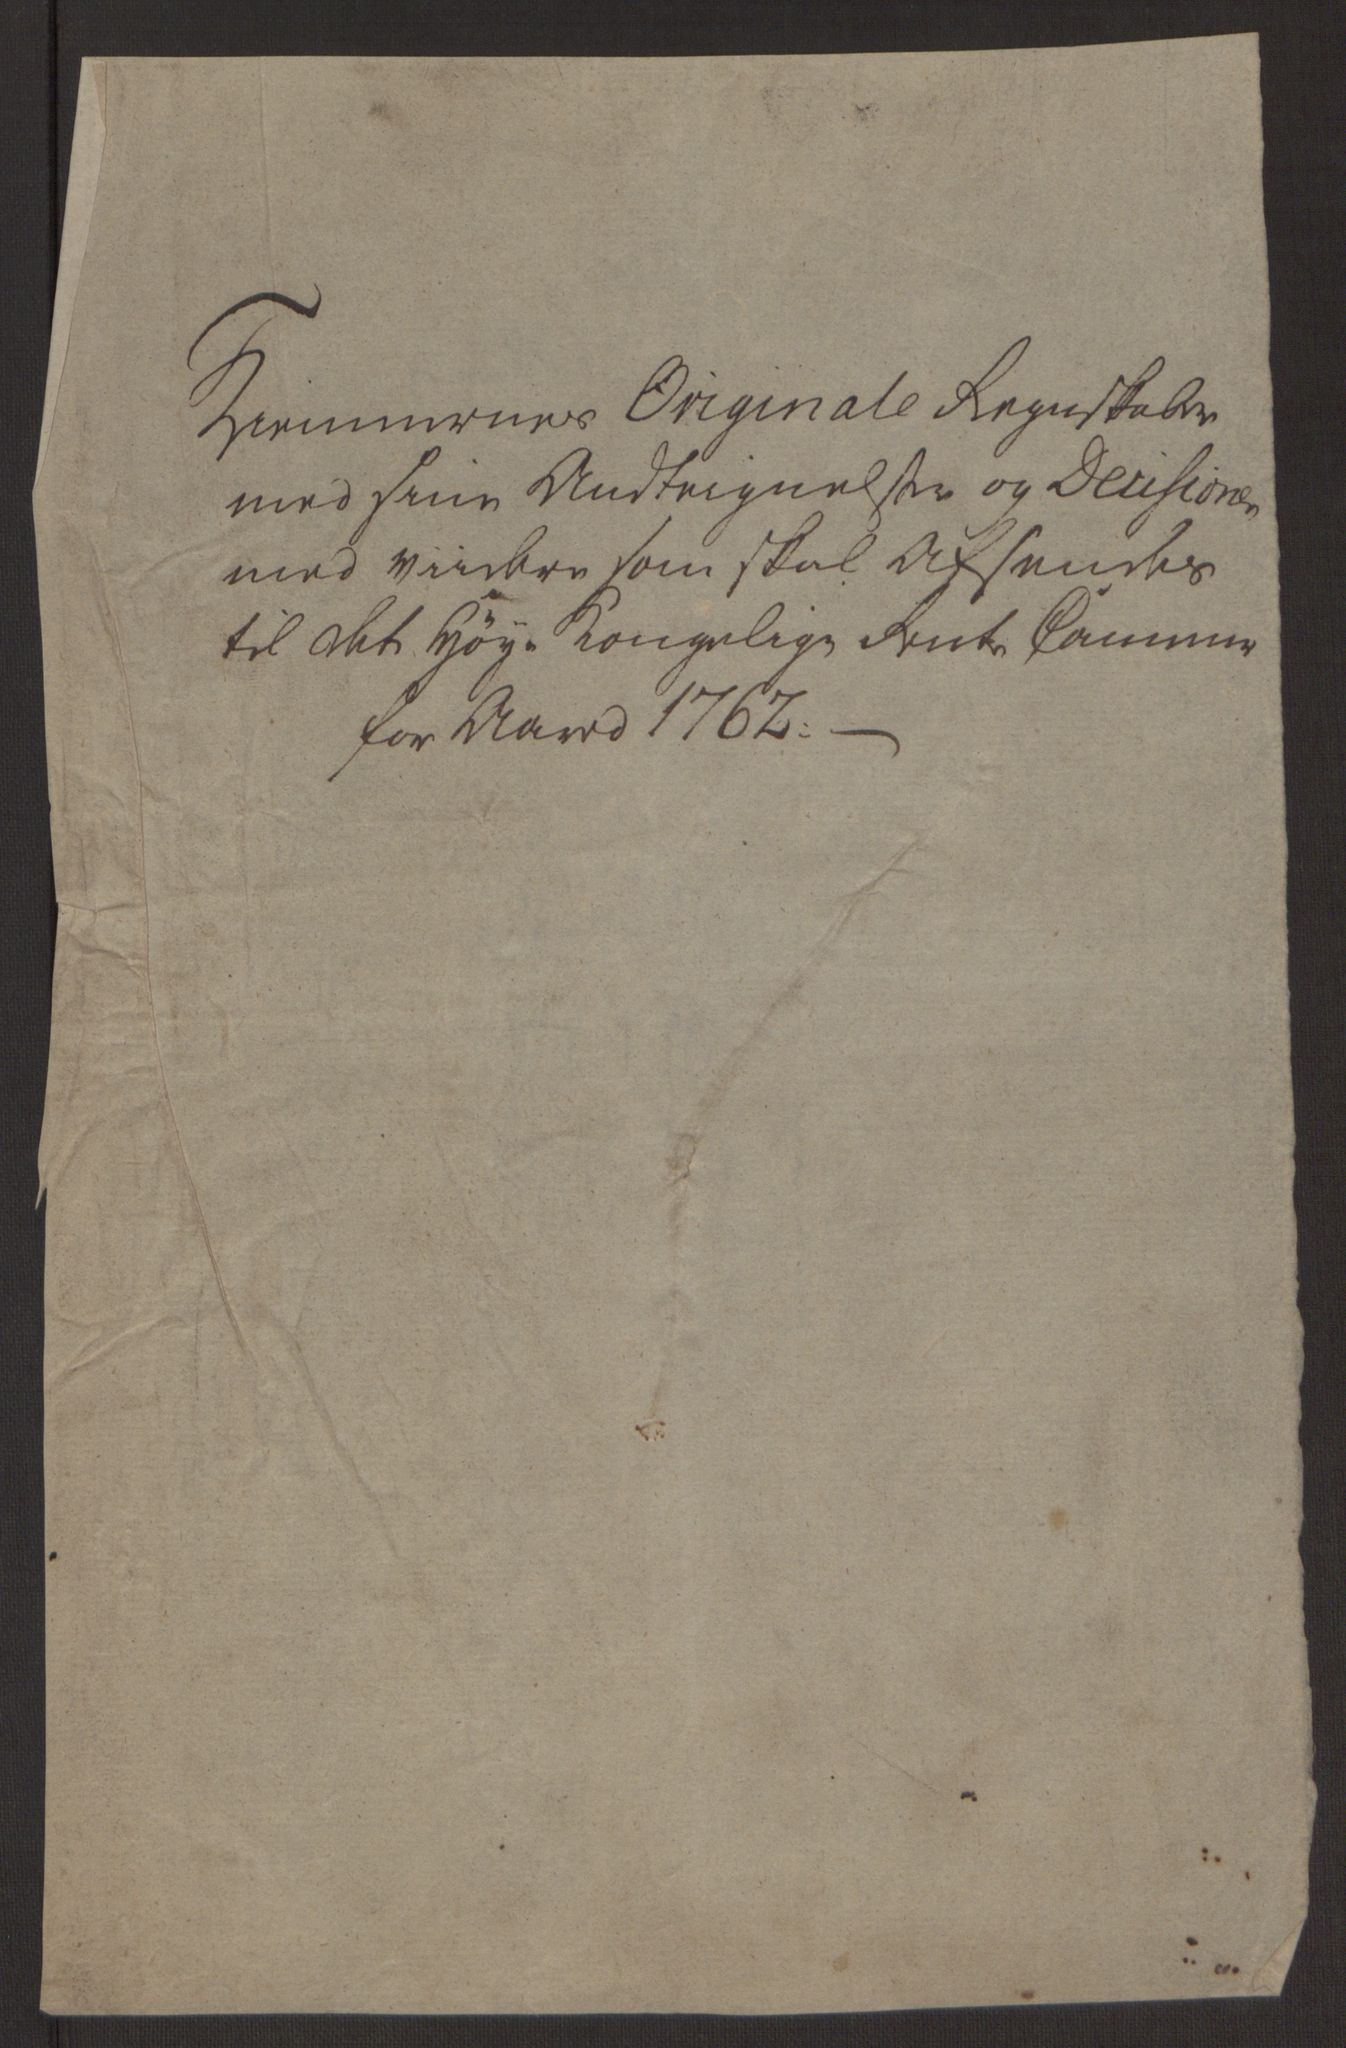 Kiemnernes Originale Regnskaber
med sine Andteignelser og Decisioner
med viidere som skal Afsendes
til det Høye Kongelige Rente Cammer
for Aared 1762. —